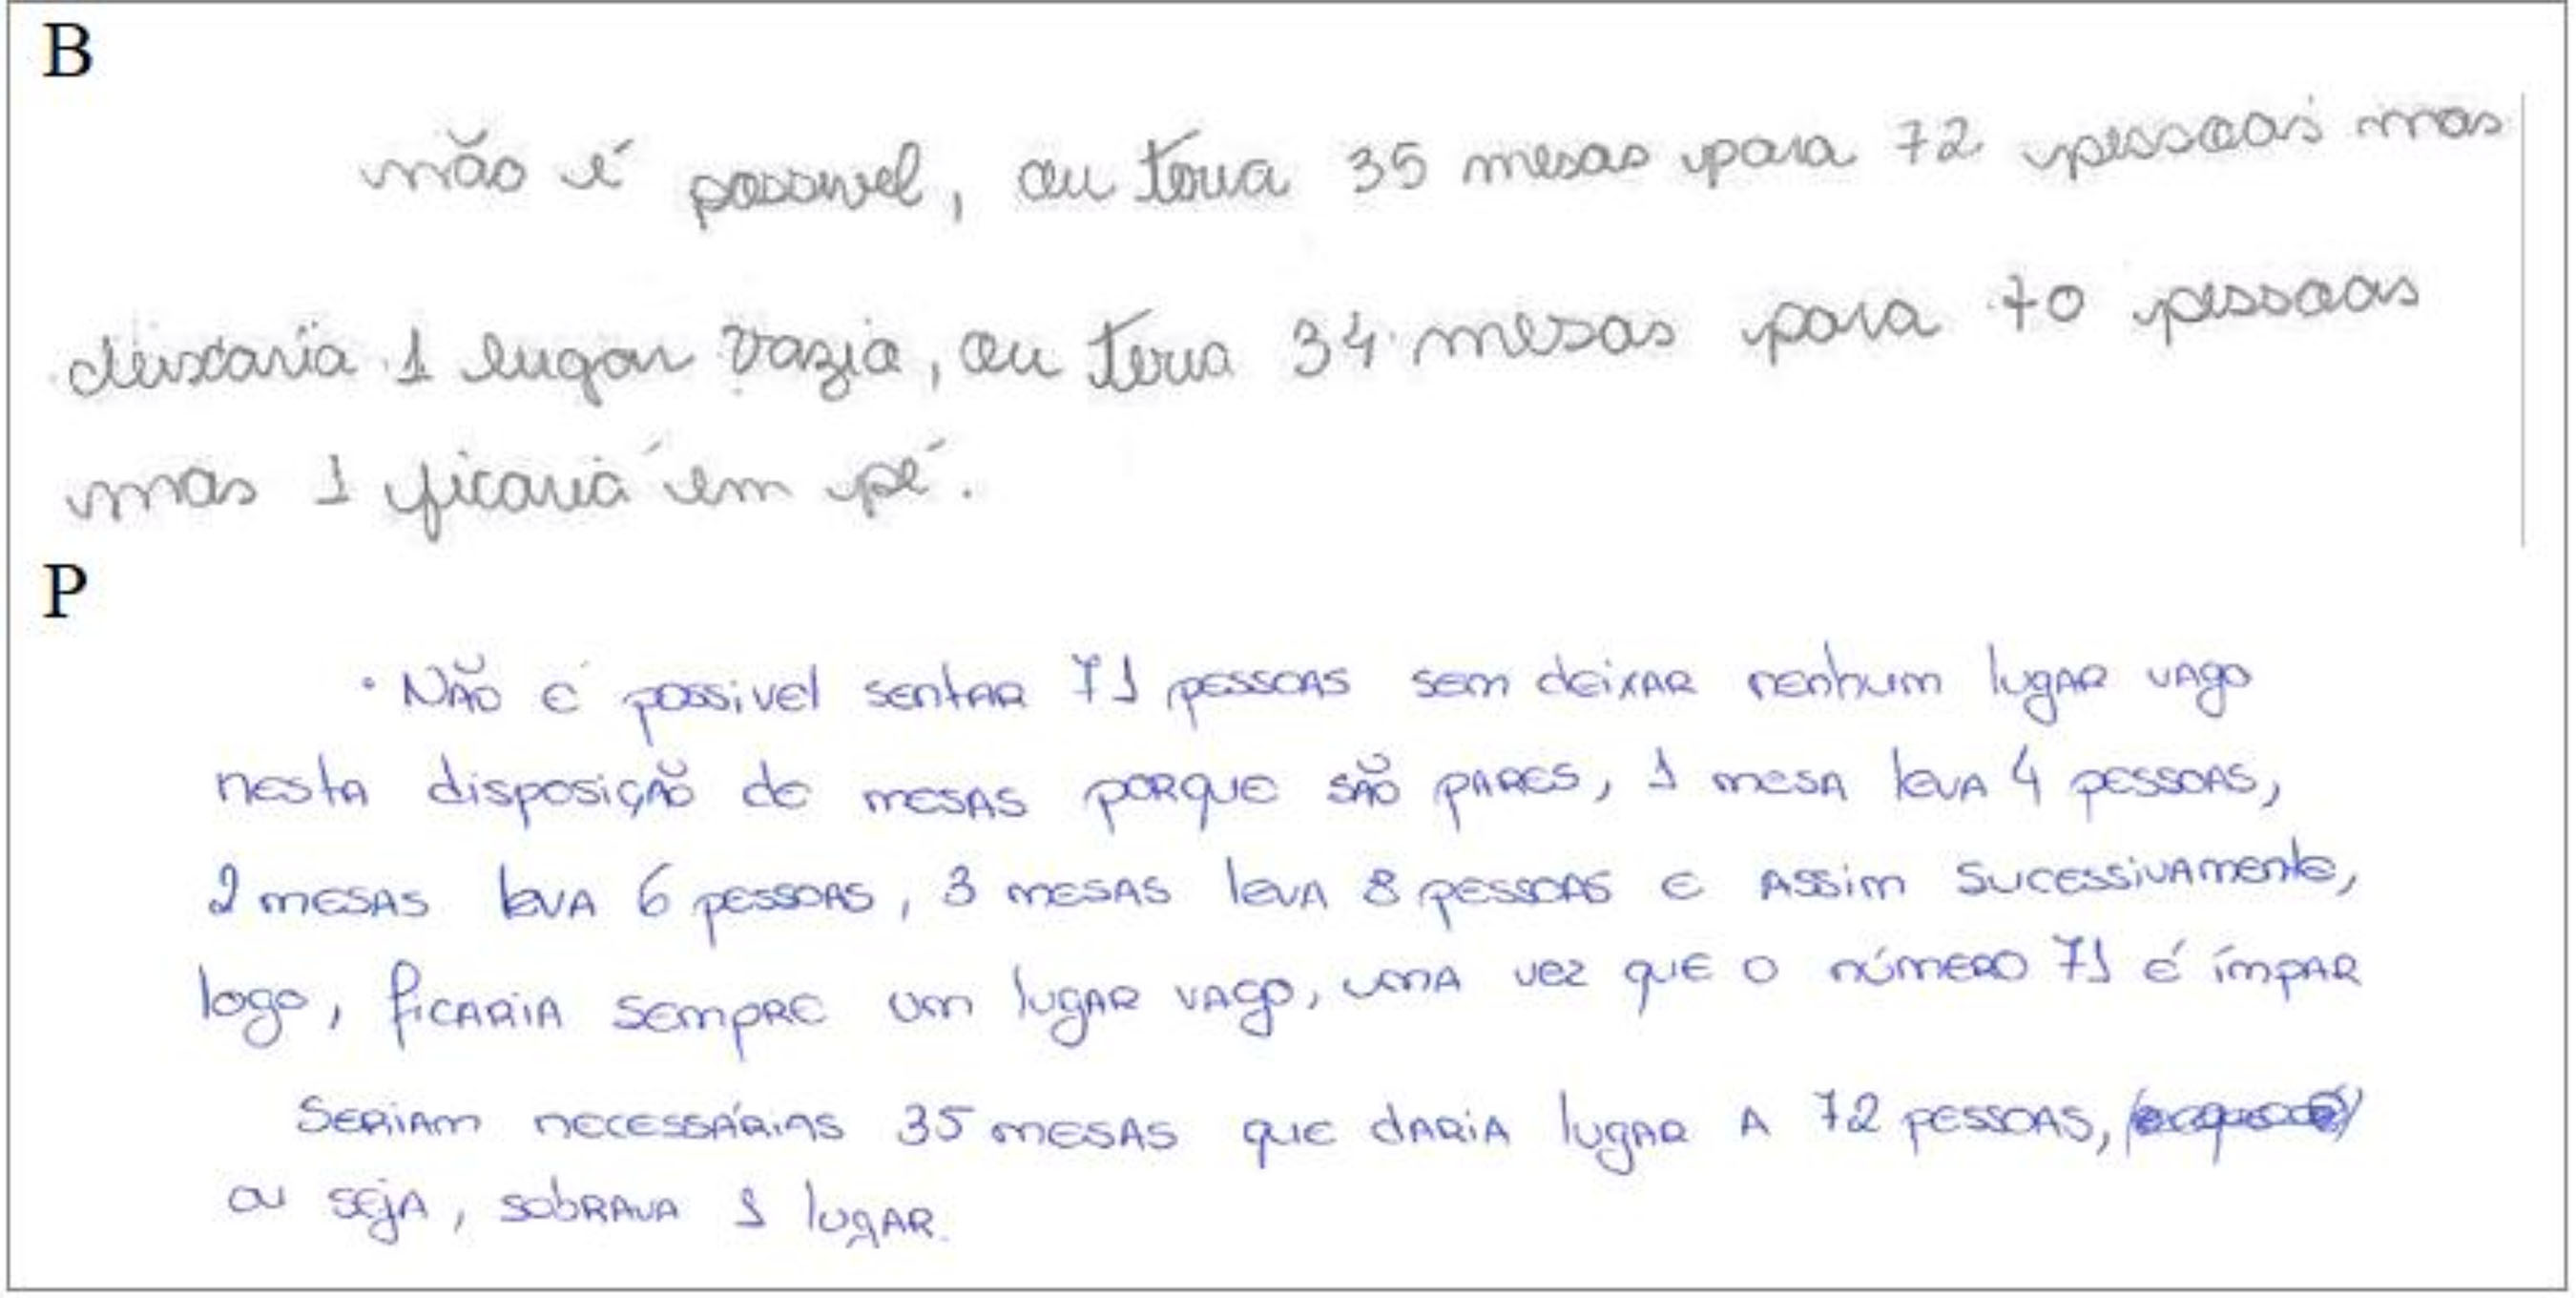 B
não é possivel, ou teria 35 mesas para 72 pessoas mas
deixaria 1 lugar vazio, ou teria 34 mesas para 70 pessoas
mas 1 ficaria em pé.
P
• Não é possivel sentar 71 pessoas sem deixar nenhum lugar vago
nesta disposição de mesas porque são pares, 1 mesa leva 4 pessoas,
2 mesas leva 6 pessoas, 3 mesas leva 8 pessoas e assim sucessivamente,
logo, ficaria sempre um lugar vago, uma vez que o número 71 é ímpar
Seriam necessárias 35 mesas que daria lugar a 72 pessoas,
ou seja, sobrava 1 lugar.